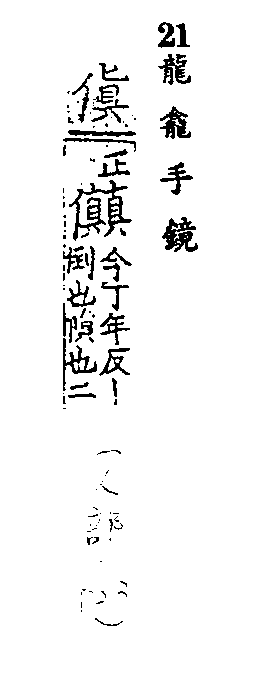 21 龍龕手鏡
傎 正傎今丁年反丨
倒也隕也二
(人部